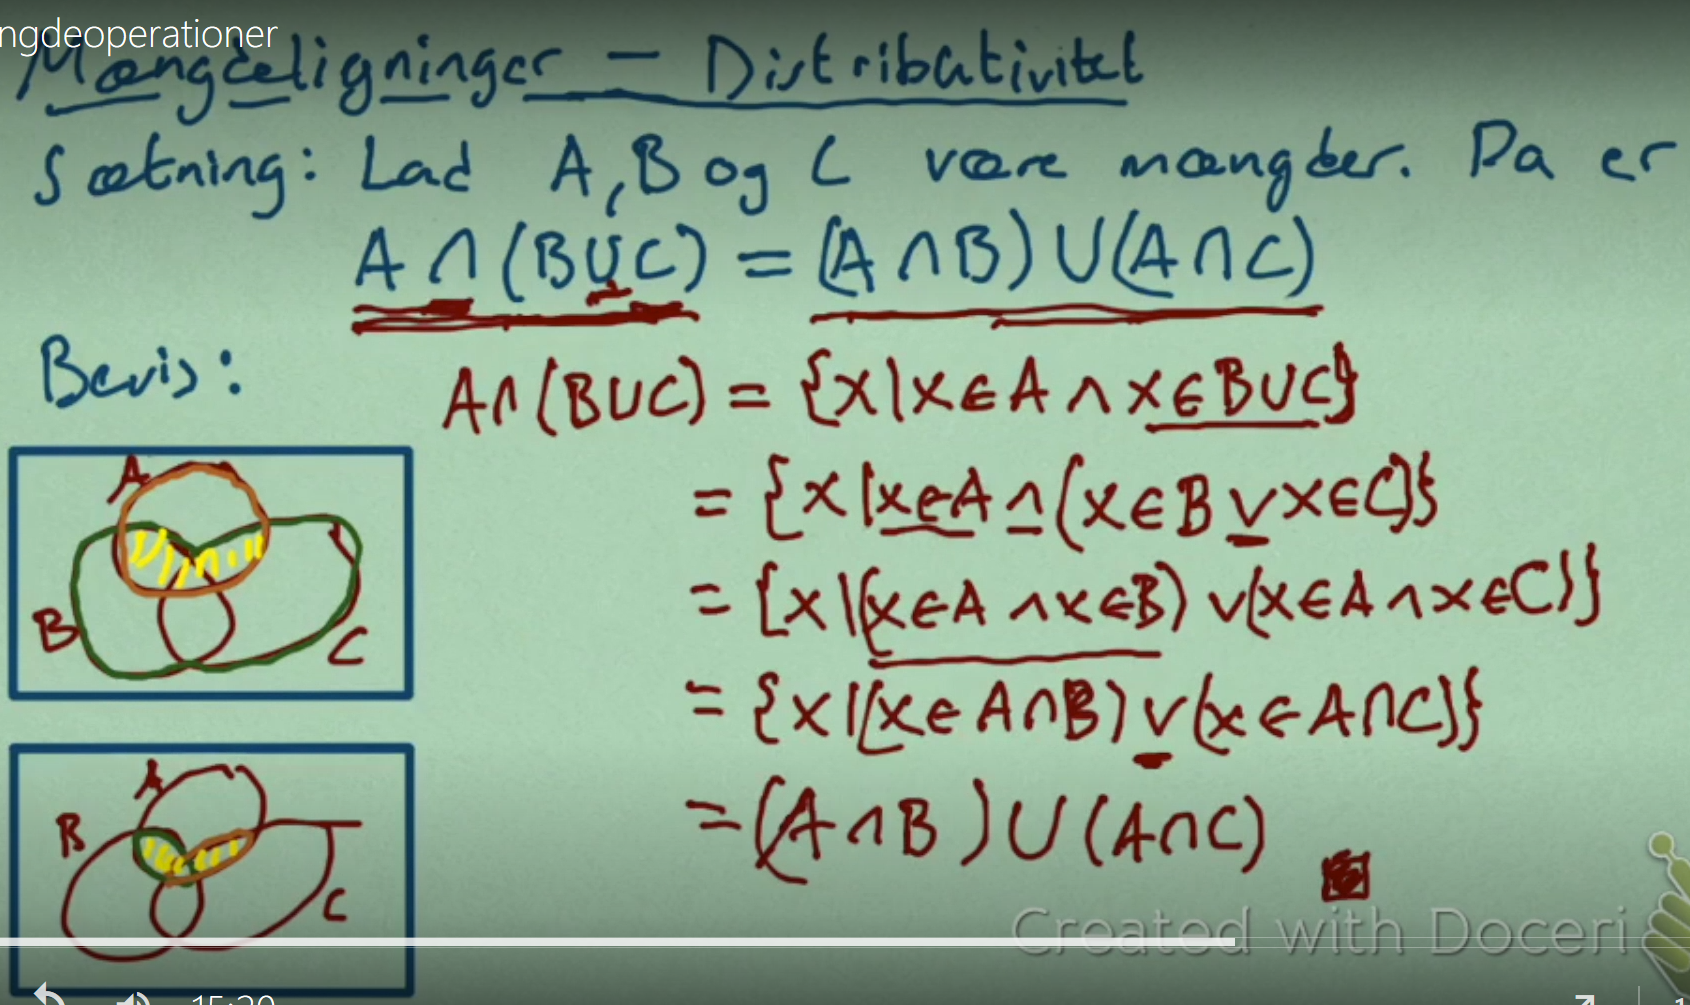 ngdeoperationer
Mængdeligninger – Distributivitet
Sætning: Lad A, B og C være mængder. Da er
A ∩ (B ∪ C) = (A ∩ B) ∪ (A ∩ C)
Bevis:
A ∩ (B ∪ C) = {x | x ∈ A ∧ x ∈ B ∪ C}
= {x | x ∈ A ∧ (x ∈ B ∨ x ∈ C)}
= {x | (x ∈ A ∧ x ∈ B) ∨ (x ∈ A ∧ x ∈ C)}
= {x | (x ∈ A ∩ B) ∨ (x ∈ A ∩ C)}
= (A ∩ B) ∪ (A ∩ C)
A
B
C
A
B
C
Created with Doceri
15:20